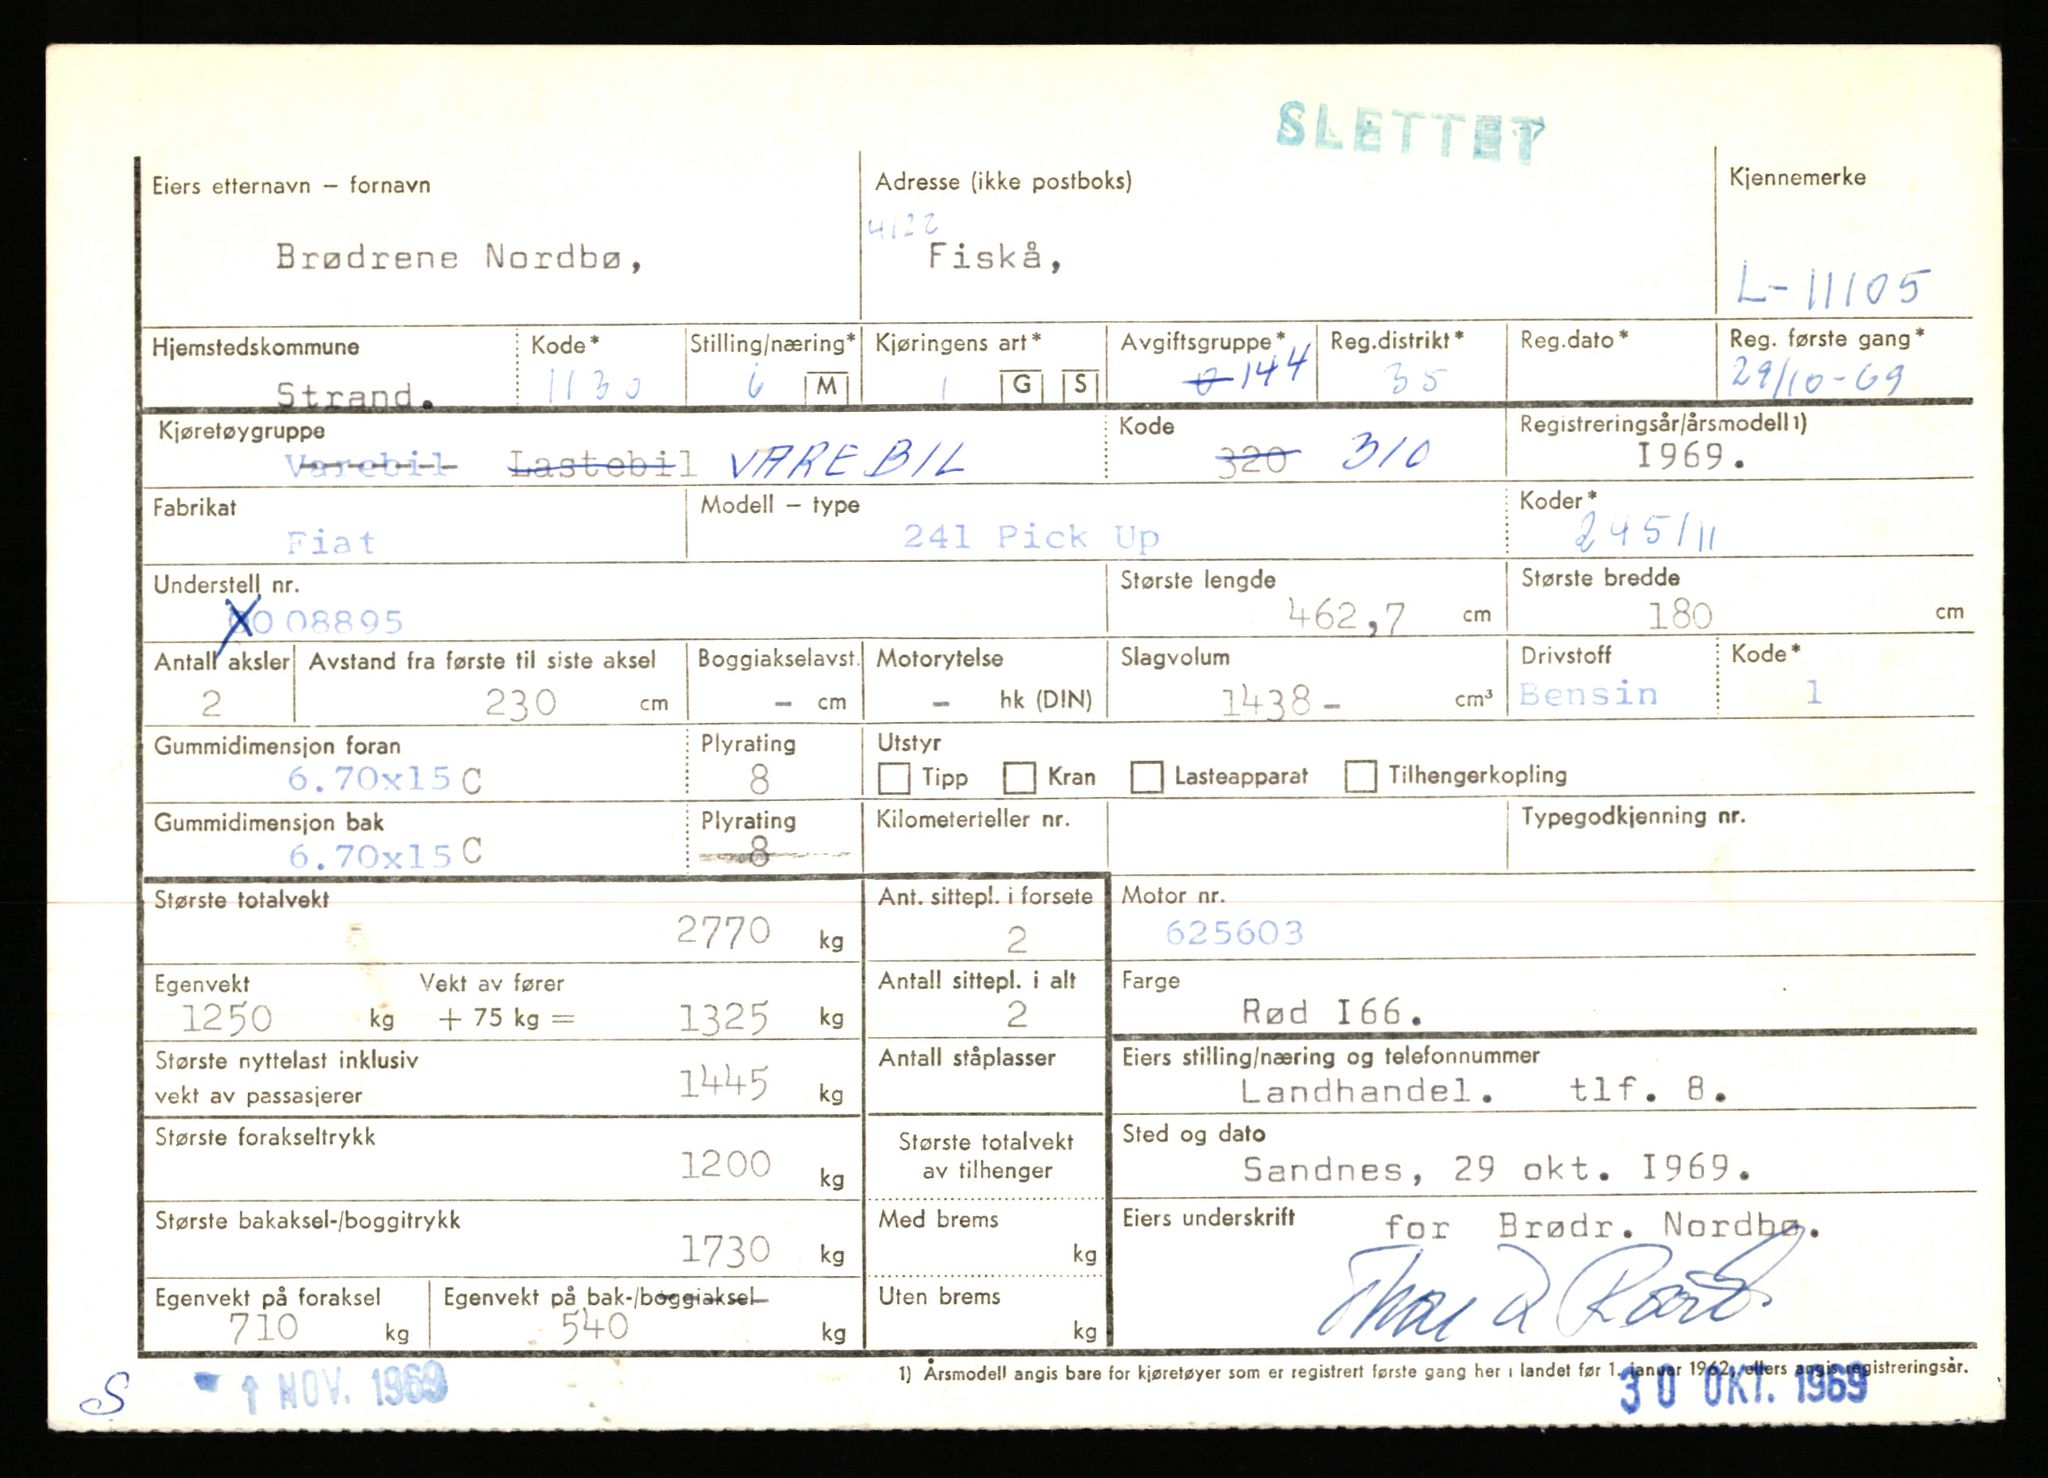 SLETTET
Eiers etternavn – fornavn
Adresse (ikke postboks)
Kjennemerke
4122
Brødrene Nordbø,
Fiskå,
L-11105
Hjemstedskommune
Kode*
Stilling/næring*
Kjøringens art*
Avgiftsgruppe*
Reg.distrikt*
Reg.dato*
Reg. første gang*
Strand.
1130
6 M
1 G S
0 144
35
29/10-69
Kjøretøygruppe
Kode
Registreringsår/årsmodell1)
Varebil Lastebil VAREBIL
320 310
I969.
Fabrikat
Modell – type
Koder*
Fiat
241 Pick Up
245/11
Understell nr.
Største lengde
Største bredde
0 08895
462,7 cm
180 cm
Antall aksler
Avstand fra første til siste aksel
Boggiakselavst.
Motorytelse
Slagvolum
Drivstoff
Kode*
2
230 cm
– cm
– hk (DIN)
1438– cm³
Bensin
1
Gummidimensjon foran
Plyrating
Utstyr
6.70x15 C
8
Tipp Kran Lasteapparat Tilhengerkopling
Gummidimensjon bak
Plyrating
Kilometerteller nr.
Typegodkjenning nr.
6.70x15 C
8
Største totalvekt
Ant. sittepl. i forsete
Motor nr.
2770 kg
2
625603
Egenvekt
Vekt av fører
Antall sittepl. i alt
Farge
1250 kg + 75 kg = 1325 kg
2
Rød I66.
Største nyttelast inklusiv
vekt av passasjerer
1445 kg
Antall ståplasser
Eiers stilling/næring og telefonnummer
Landhandel. tlf. 8.
Største forakseltrykk
1200 kg
Største totalvekt
av tilhenger
Sted og dato
Sandnes, 29 okt. I969.
Største bakaksel-/boggitrykk
1730 kg
Med brems
kg
Eiers underskrift
for Brødr. Nordbø.
Egenvekt på foraksel
Egenvekt på bak-/boggiaksel
Uten brems
710 kg
540 kg
kg
1) Årsmodell angis bare for kjøretøyer som er registrert første gang her i landet før 1. januar 1962, ellers angis registreringsår.
S
- 1 NOV. 1969
30 OKT. 1969